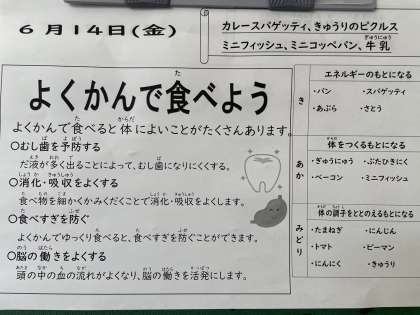 ６月１４日(金)
カレースパゲッティ、きゅうりのピクルス
ミニフィッシュ、ミニコッペパン、牛乳
よくかんで食べよう
よくかんで食べると体によいことがたくさんあります。
○むし歯を予防する
だ液が多く出ることによって、むし歯になりにくくする。
○消化・吸収をよくする
食べ物を細かくかみくだくことで消化・吸収をよくします。
○食べすぎを防ぐ
よくかんでゆっくり食べると、食べすぎを防ぐことができます。
○脳の働きをよくする
頭の中の血の流れがよくなり、脳の働きを活発にします。
き
エネルギーのもとになる
・パン ・スパゲッティ
・あぶら ・さとう
あか
体をつくるもとになる
・ぎゅうにゅう ・ぶたひきにく
・ベーコン ・ミニフィッシュ
みどり
体の調子をととのえるもとになる
・たまねぎ ・にんじん
・トマト ・ピーマン
・にんにく ・きゅうり